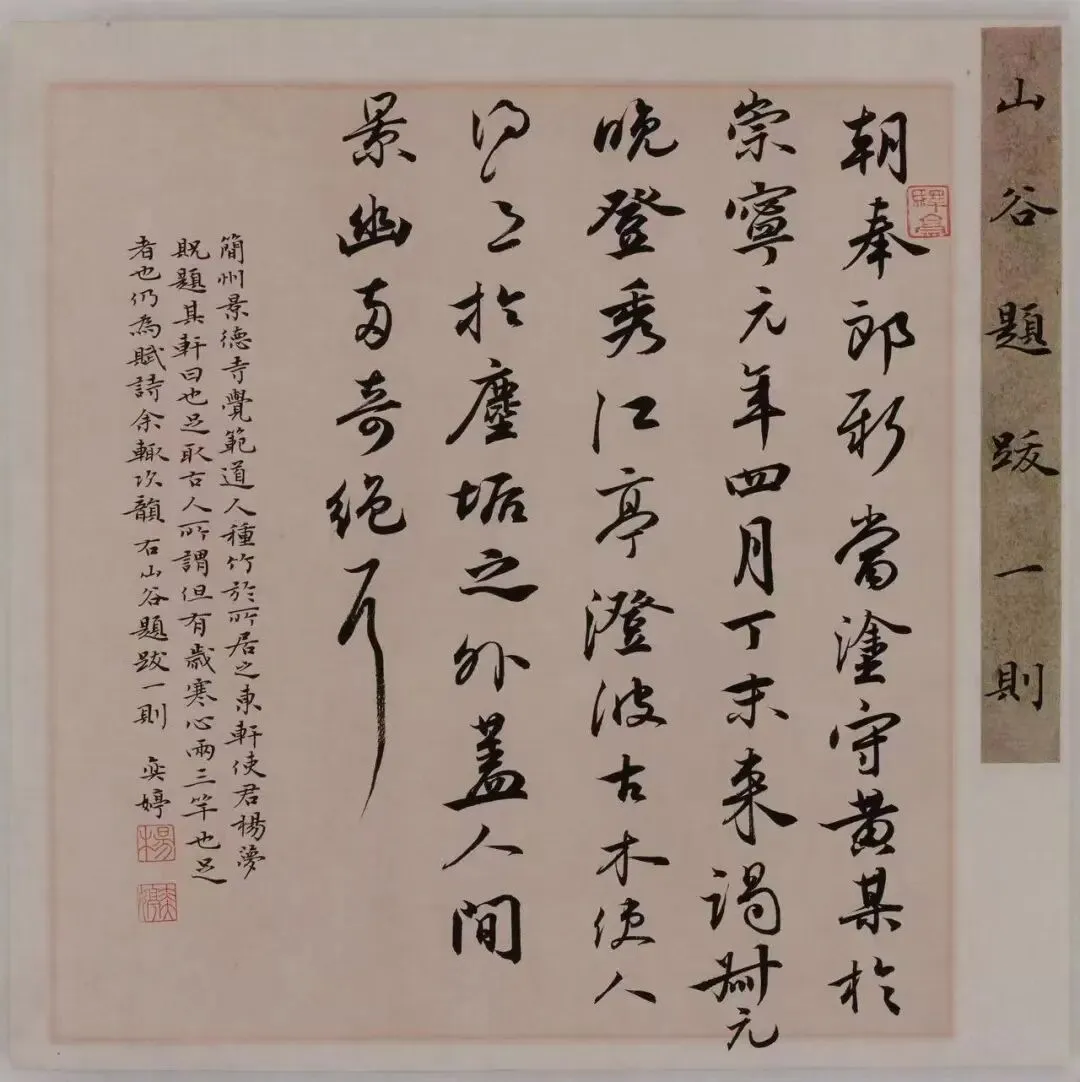 山谷題跋一則
朝奉郎新當塗守黃某於
崇寧元年四月丁未来謁元
晚登秀江亭澄波古木使人
得意於塵垢之外蓋人間
景幽兩奇絕耳
簡州景德寺覺範道人種竹於所居之東軒使君楊夢
貺題其軒曰也足取古人所謂但有歲寒心兩三竿也足
者也仍為賦詩余輒次韻右山谷題跋一則 奕婷
楊